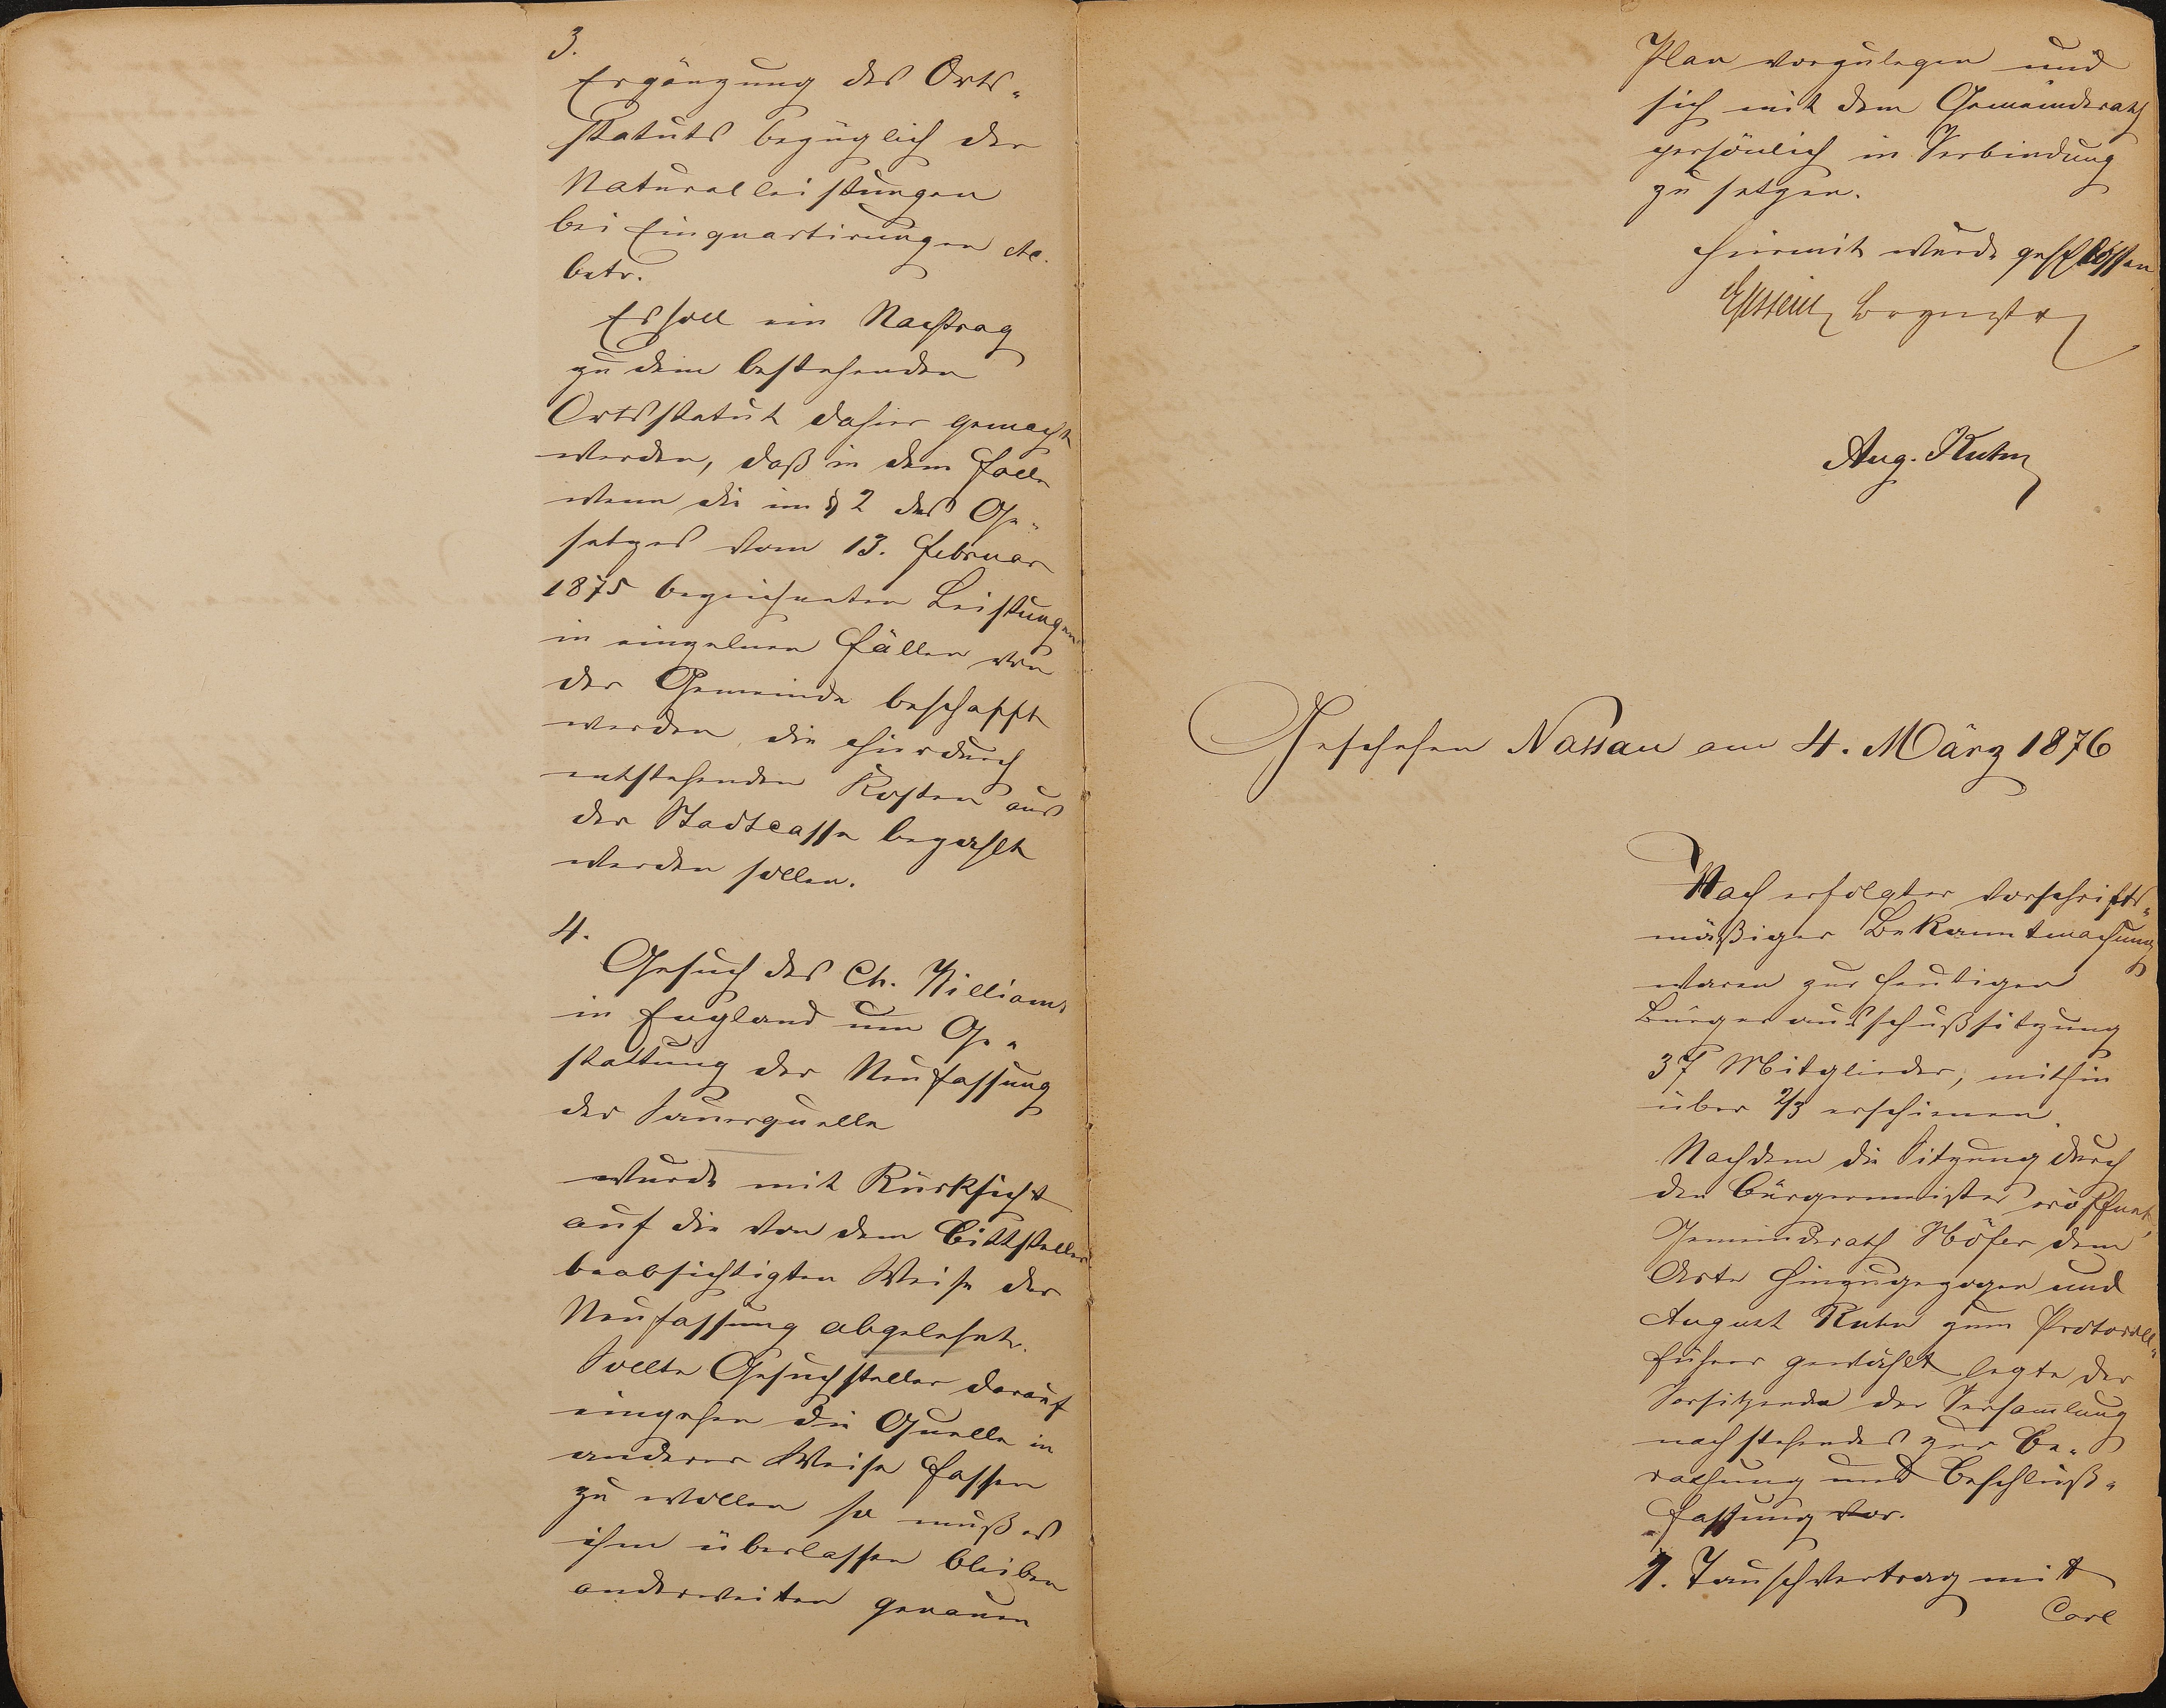 3.
Ergänzung des Orts-
statuts bezüglich der
Naturalleistungen
bei Einquartirungen etc.
betr.
Es soll ein Nachtrag
zu dem bestehenden
Ortsstatut dahier gemacht
werden, daß in dem Falle
wenn die im § 2 des Ge-
setzes vom 13. Februar
1875 bezeichneten Leistungen
in einzelnen Fällen von
der Gemeinde beschafft
werden, die hierdurch
entstehenden Kosten aus
der Stadtcasse bezahlt
werden sollen.
4.
Gesuch des Ch. Williams
in England um Ge-
stattung der Neufassung
der Sauerquelle
wurde mit Rücksicht
auf die von dem Bittsteller
beabsichtigten Weise der
Neufassung abgelehnt.
Sollte Gesuchsteller darauf
eingehen die Quelle in
anderer Weise fassen
zu wollen so muß es
ihm überlassen bleiben
anderweiten genauen
Plan vorzulegen und
sich mit dem Gemeinderath
persönlich in Verbindung
zu setzen.
Hiermit wurde geschlossen
Aug. Kuhn
Geschehen Nassau am 4. März 1876
Nach erfolgter vorschrifts-
mäßiger Bekanntmachung
waren zur heutigen
Bürgerausschußsitzung
37 Mitglieder, mithin
über 2/3 erschienen.
Nachdem die Sitzung durch
den Bürgermeister eröffnet,
Gemeinderath Höfer dem
Acte hinzugezogen und
August Kuhn zum Protocoll-
führer gewählt legte der
Vorsitzende der Versamlung
nachstehendes zur Be-
rathung und Beschluß-
fassung vor.
1. Tauschvertrag mit
Carl